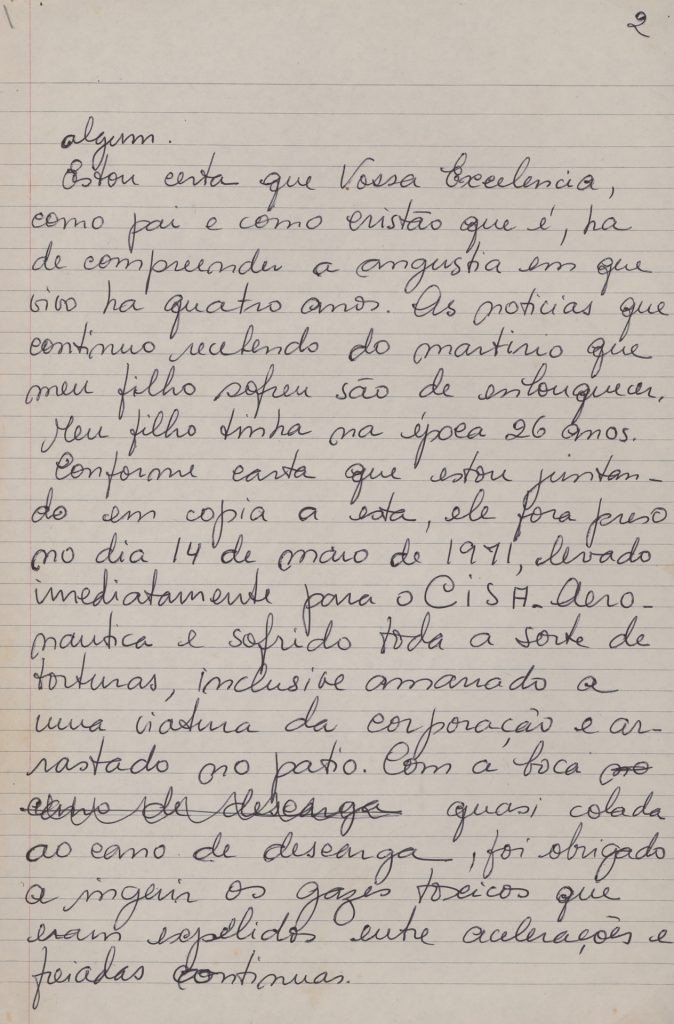 2
algum.
Estou certa que Vossa Excelencia,
como pai e como cristão que é, ha
de compreender a angustia em que
vivo ha quatro anos. As noticias que
continuo recebendo do martirio que
meu filho sofreu são de enlouquecer.
Meu filho tinha na época 26 anos.
Conforme carta que estou juntan-
do em copia a esta, ele fora preso
no dia 14 de maio de 1971, levado
imediatamente para o CISA-Aero-
nautica e sofrido toda a sorte de
torturas, inclusive amarrado a
uma viatura da corporação e ar-
rastado no patio. Com a boca no
cano de descarga quasi colada
ao cano de descarga, foi obrigado
a ingerir os gazes toxicos que
eram expelidos entre acelerações e
freiadas continuas.